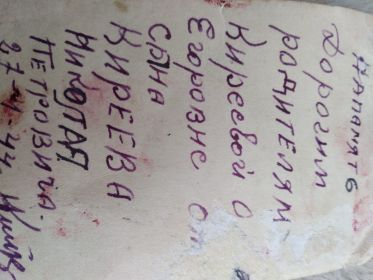 НАПАМЯТЬ
Дорогим
РОДИТЕЛЯМ
Киреевой О
Егоровне от
сына
КИРЕЕВА
НИКОЛАЯ
ПЕТРОВИЧА